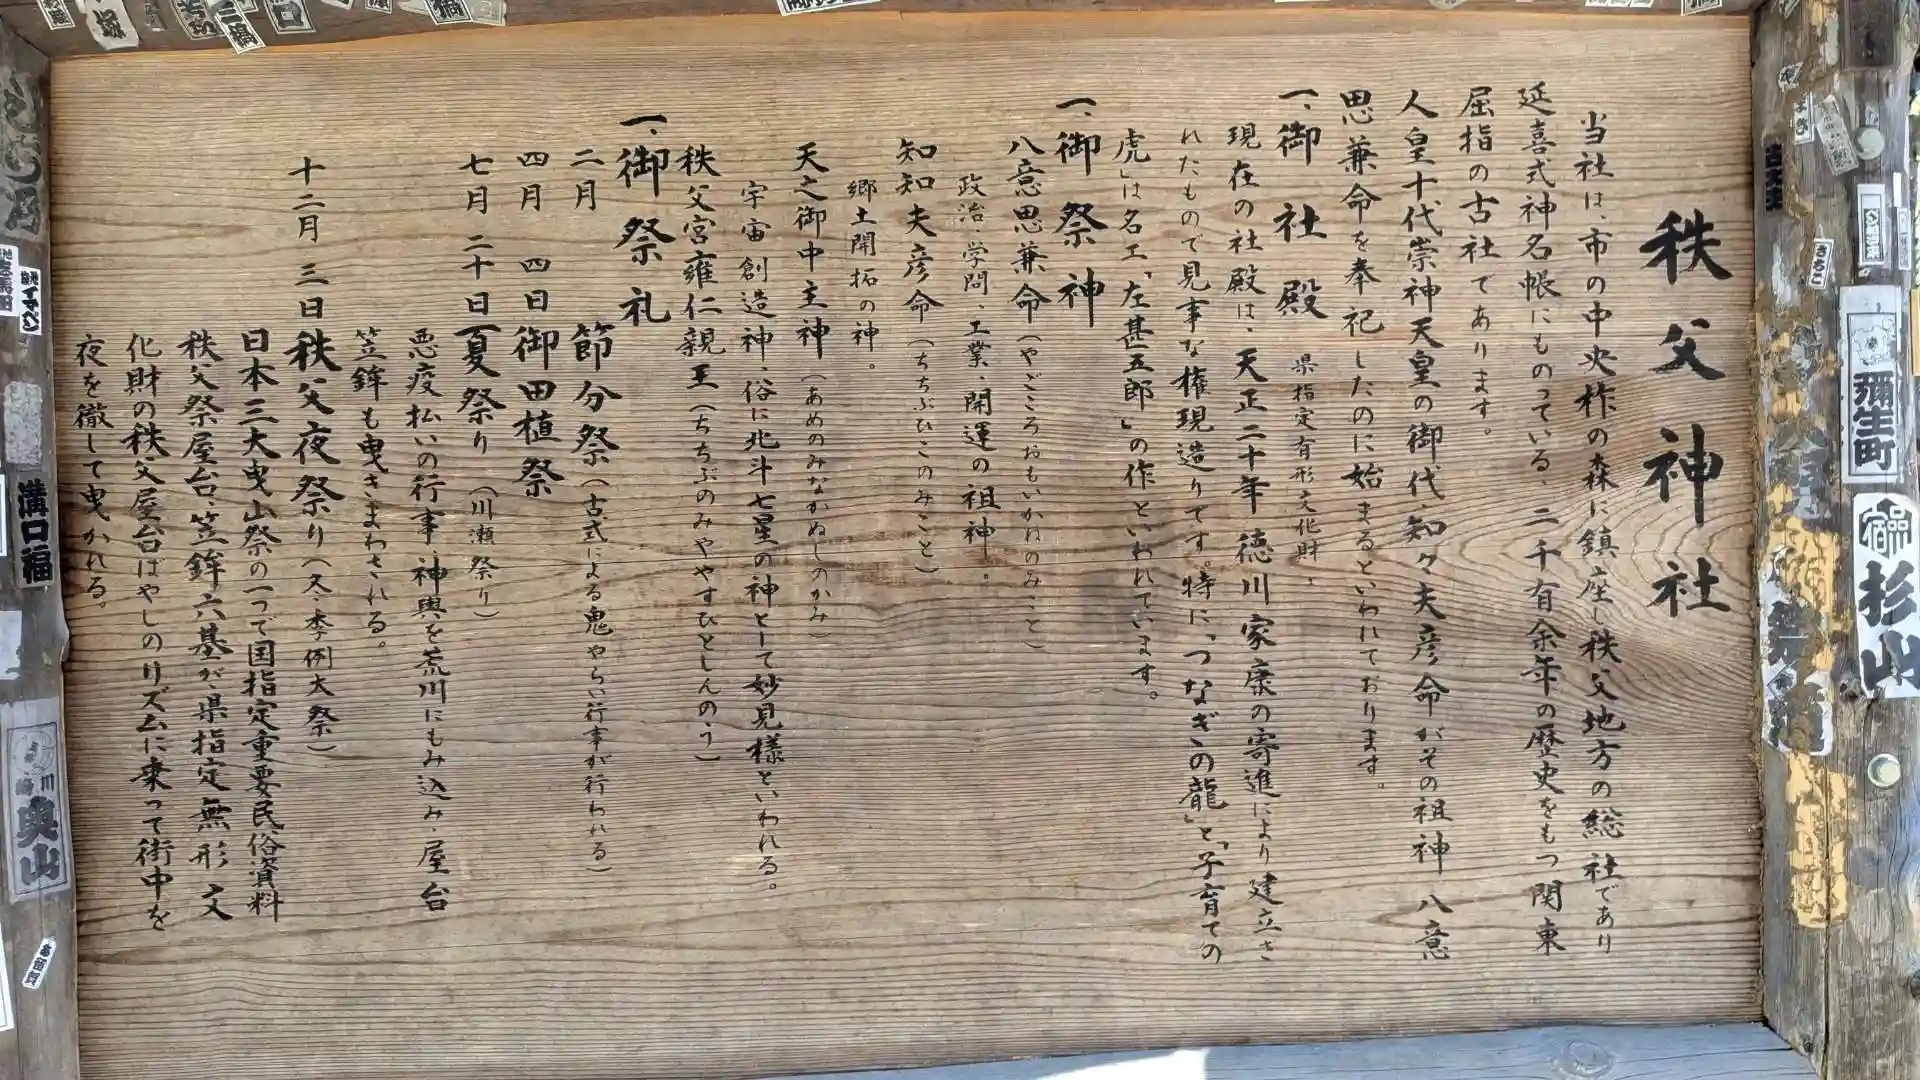 秩父神社
当社は、市の中央柞の森に鎮座し秩父地方の総社であり
延喜式神名帳にものっている、二千有余年の歴史をもつ関東
屈指の古社であります。
人皇十代崇神天皇の御代、知々夫彦命がその祖神 八意
思兼命を奉祀したのに始まるといわれております。
一、御社殿 県指定有形文化財、
現在の社殿は、天正二十年 徳川家康の寄進により建立さ
れたもので見事な権現造りです。特に「つなぎの龍」と「子育ての
虎」は名工「左甚五郎」の作といわれています。
一、御祭神
八意思兼命（やごころおもいかねのみこと）
政治、学問、工業、開運の祖神。
知知夫彦命（ちちぶひこのみこと）
郷土開拓の神。
天之御中主神（あめのみなかぬしのかみ）
宇宙創造神、俗に北斗七星の神として妙見様といわれる。
秩父宮雍仁親王（ちちぶのみややすひとしんのう）
一、御祭礼
二月 節分祭（古式による鬼やらい行事が行われる）
四月 四日 御田植祭
七月 二十日 夏祭り（川瀬祭り）
悪疫払いの行事、神輿を荒川にもみ込み、屋台
笠鉾も曳きまわされる。
十二月 三日 秩父夜祭り（冬季例大祭）
日本三大曳山祭の一つで国指定重要民俗資料
秩父祭屋台、笠鉾六基が、県指定無形文
化財の秩父屋台ばやしのリズムに乗って街中を
夜を徹して曳かれる。
彌生町
杉山
溝口福
奥山